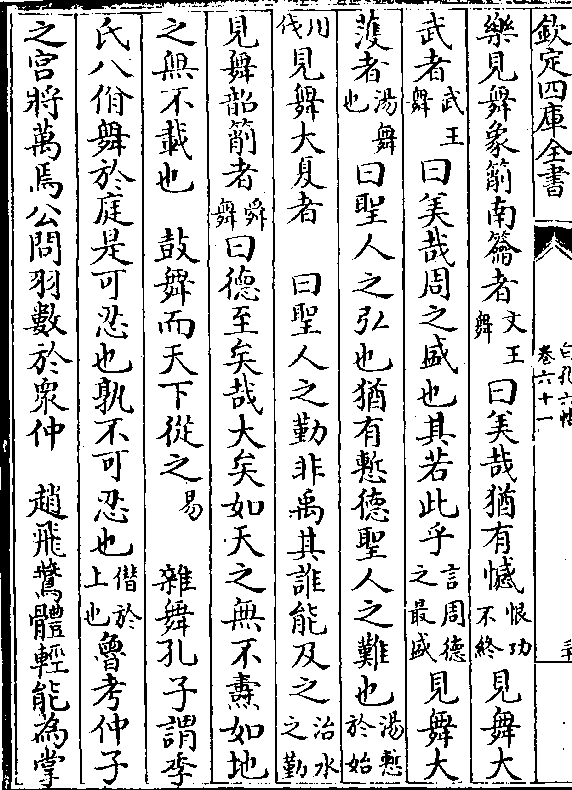 欽定四庫全書
白孔六帖
卷六十一
樂見舞象箾南籥者文王舞曰美哉猶有憾恨功不終見舞大
武者武王舞曰美哉周之盛也其若此乎言周德之最盛見舞大
濩者湯舞也曰聖人之弘也猶有慙德聖人之難也湯慙於始
伐見舞大夏者 曰聖人之勤非禹其誰能及之治水之勤
見舞韶箾者舜舞曰德至矣哉大矣如天之無不燾如地
之無不載也 鼓舞而天下從之易 雜舞孔子謂季
氏八佾舞於庭是可忍也孰不可忍也僭於上也魯考仲子
之宮將萬焉公問羽數於衆仲 趙飛鷰體輕能為掌